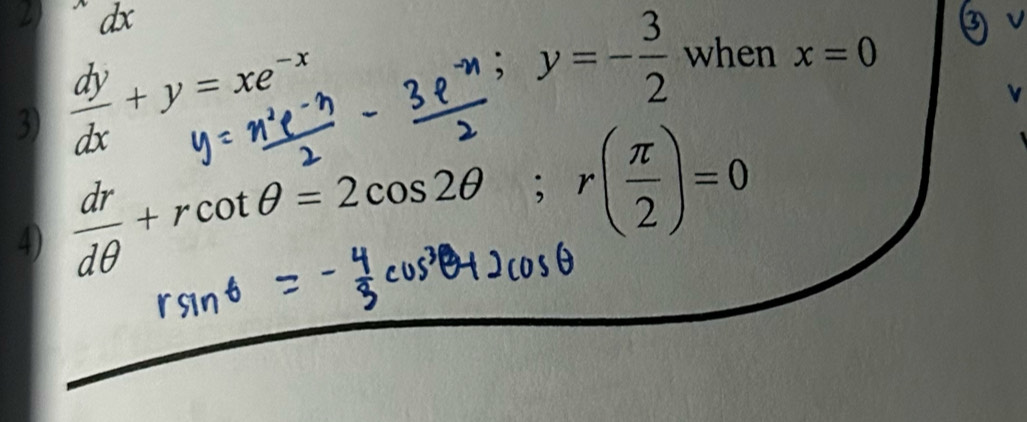 2) x dx
3) dy/dx + y = xe^{-x} ; y = -3/2 when x = 0
y = x²e^{-x}/2 - 3e^{-x}/2
4) dr/dθ + r cot θ = 2 cos 2θ ; r(π/2) = 0
r sin θ = -4/3 cos³θ + 2 cos θ
③